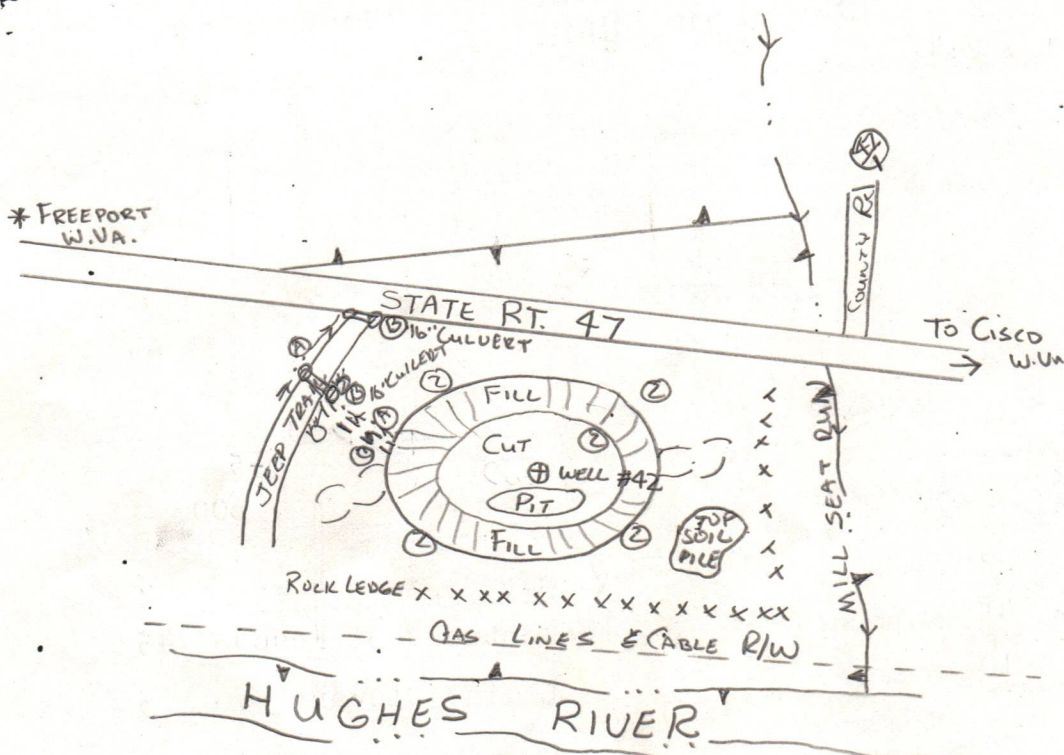 * FREEPORT
W.VA.
COUNTY Rd
STATE RT. 47
TO CISCO
W.VA
B 16" CULVERT
A
B 16" CULVERT
JEEP TRAIL
A
2
2
FILL
CUT
2
WELL #42
PIT
FILL
2
2
TOP
SOIL
PILE
MILL SEAT RUN
ROCK LEDGE x x x x x x x x x x x x x x
GAS LINES & CABLE R/W
HUGHES RIVER